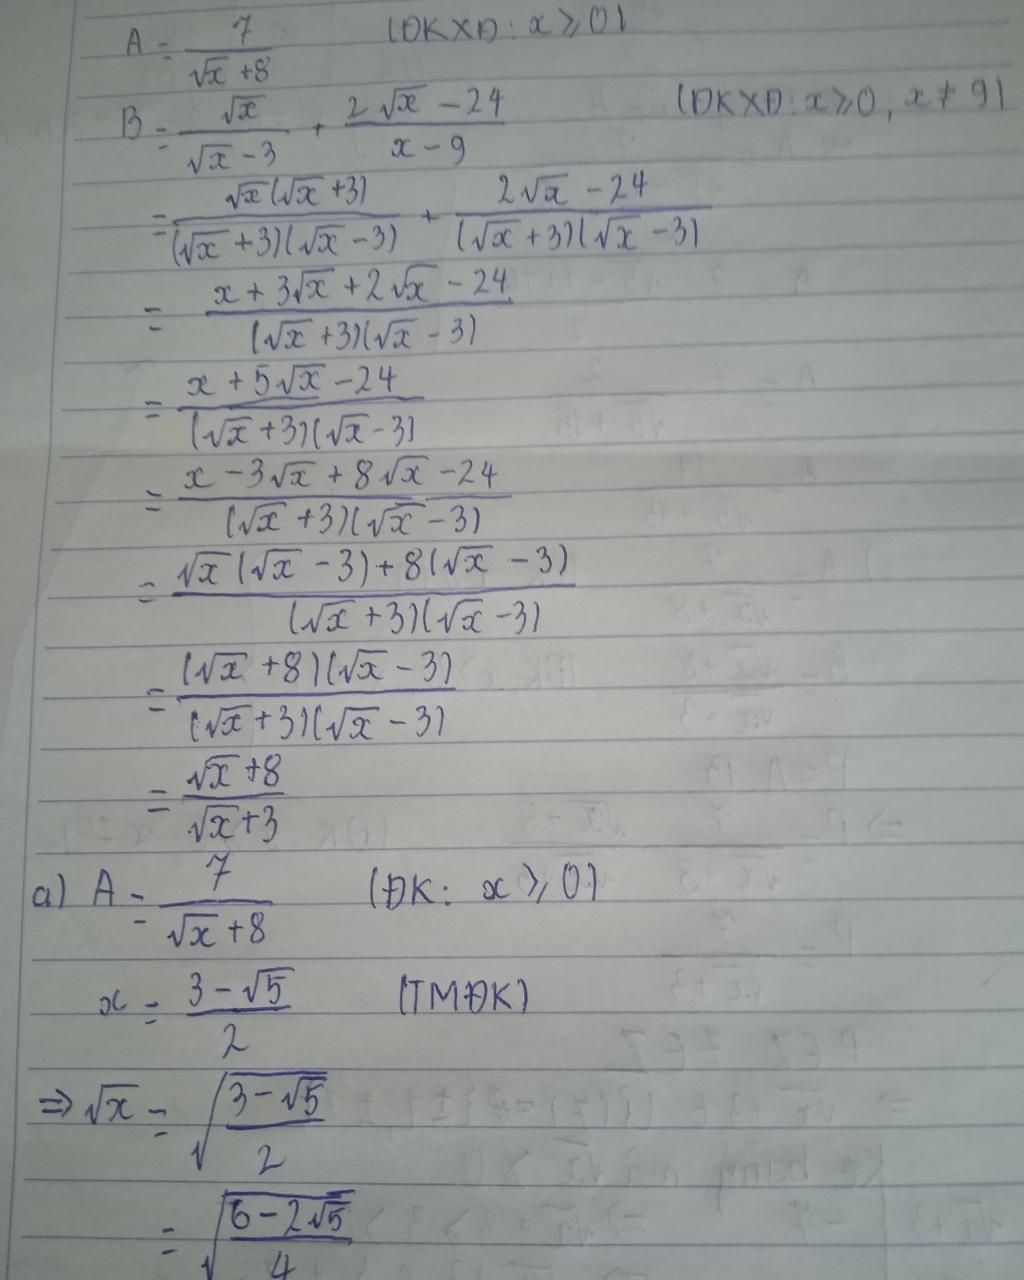 A = 7/(√x + 8) (ĐKXĐ: x ≥ 0)
B = √x/(√x - 3) + (2√x - 24)/(x - 9) (ĐKXĐ: x ≥ 0, x ≠ 9)
= √x(√x + 3)/((√x + 3)(√x - 3)) + (2√x - 24)/((√x + 3)(√x - 3))
= (x + 3√x + 2√x - 24)/((√x + 3)(√x - 3))
= (x + 5√x - 24)/((√x + 3)(√x - 3))
= (x - 3√x + 8√x - 24)/((√x + 3)(√x - 3))
= (√x(√x - 3) + 8(√x - 3))/((√x + 3)(√x - 3))
= ((√x + 8)(√x - 3))/((√x + 3)(√x - 3))
= (√x + 8)/(√x + 3)
a) A = 7/(√x + 8) (ĐK: x ≥ 0)
x = (3 - √5)/2 (TMĐK)
⇒ √x = √((3 - √5)/2)
= √((6 - 2√5)/4)